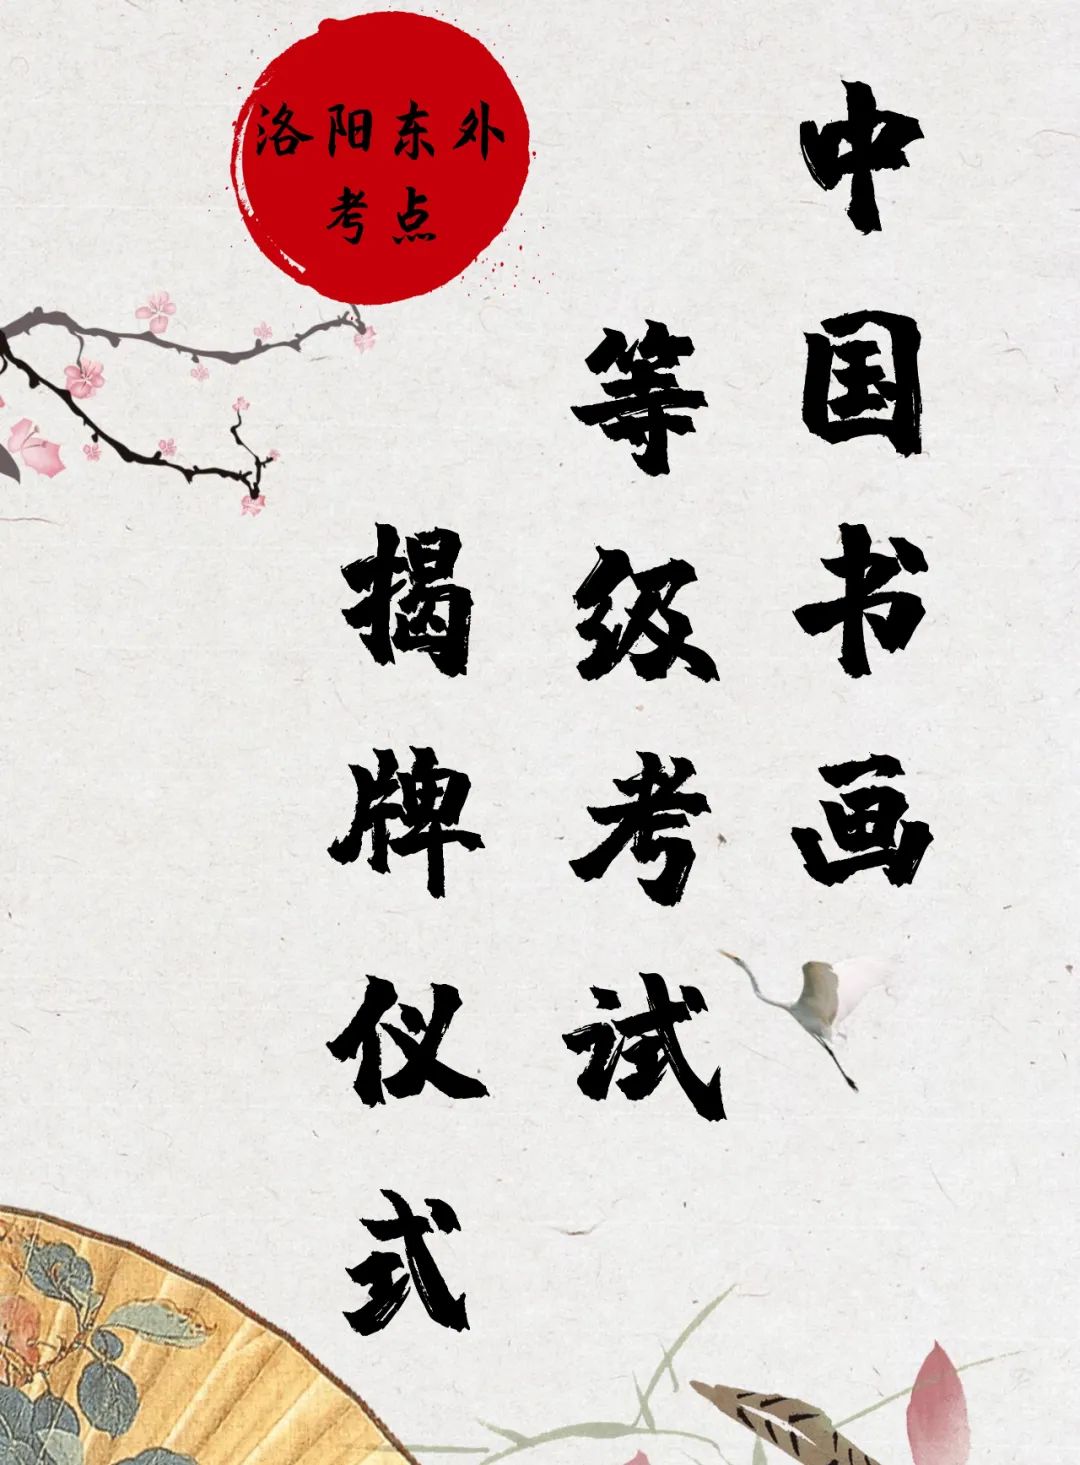 中国书画
等级考试
揭牌仪式
洛阳东外
考点